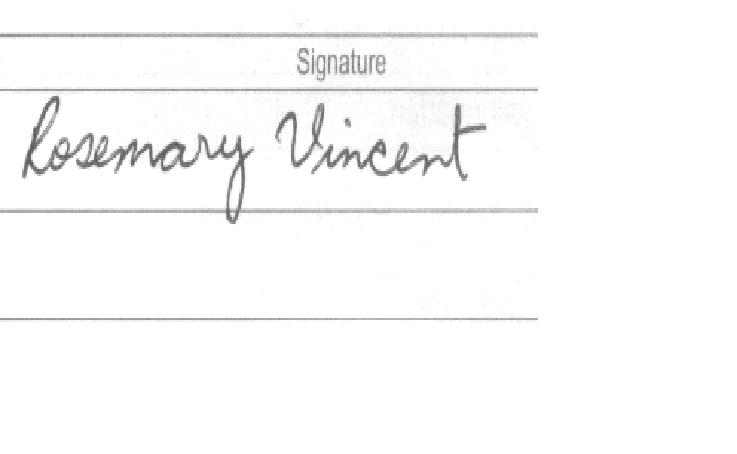 Signature
Rosemary Vincent